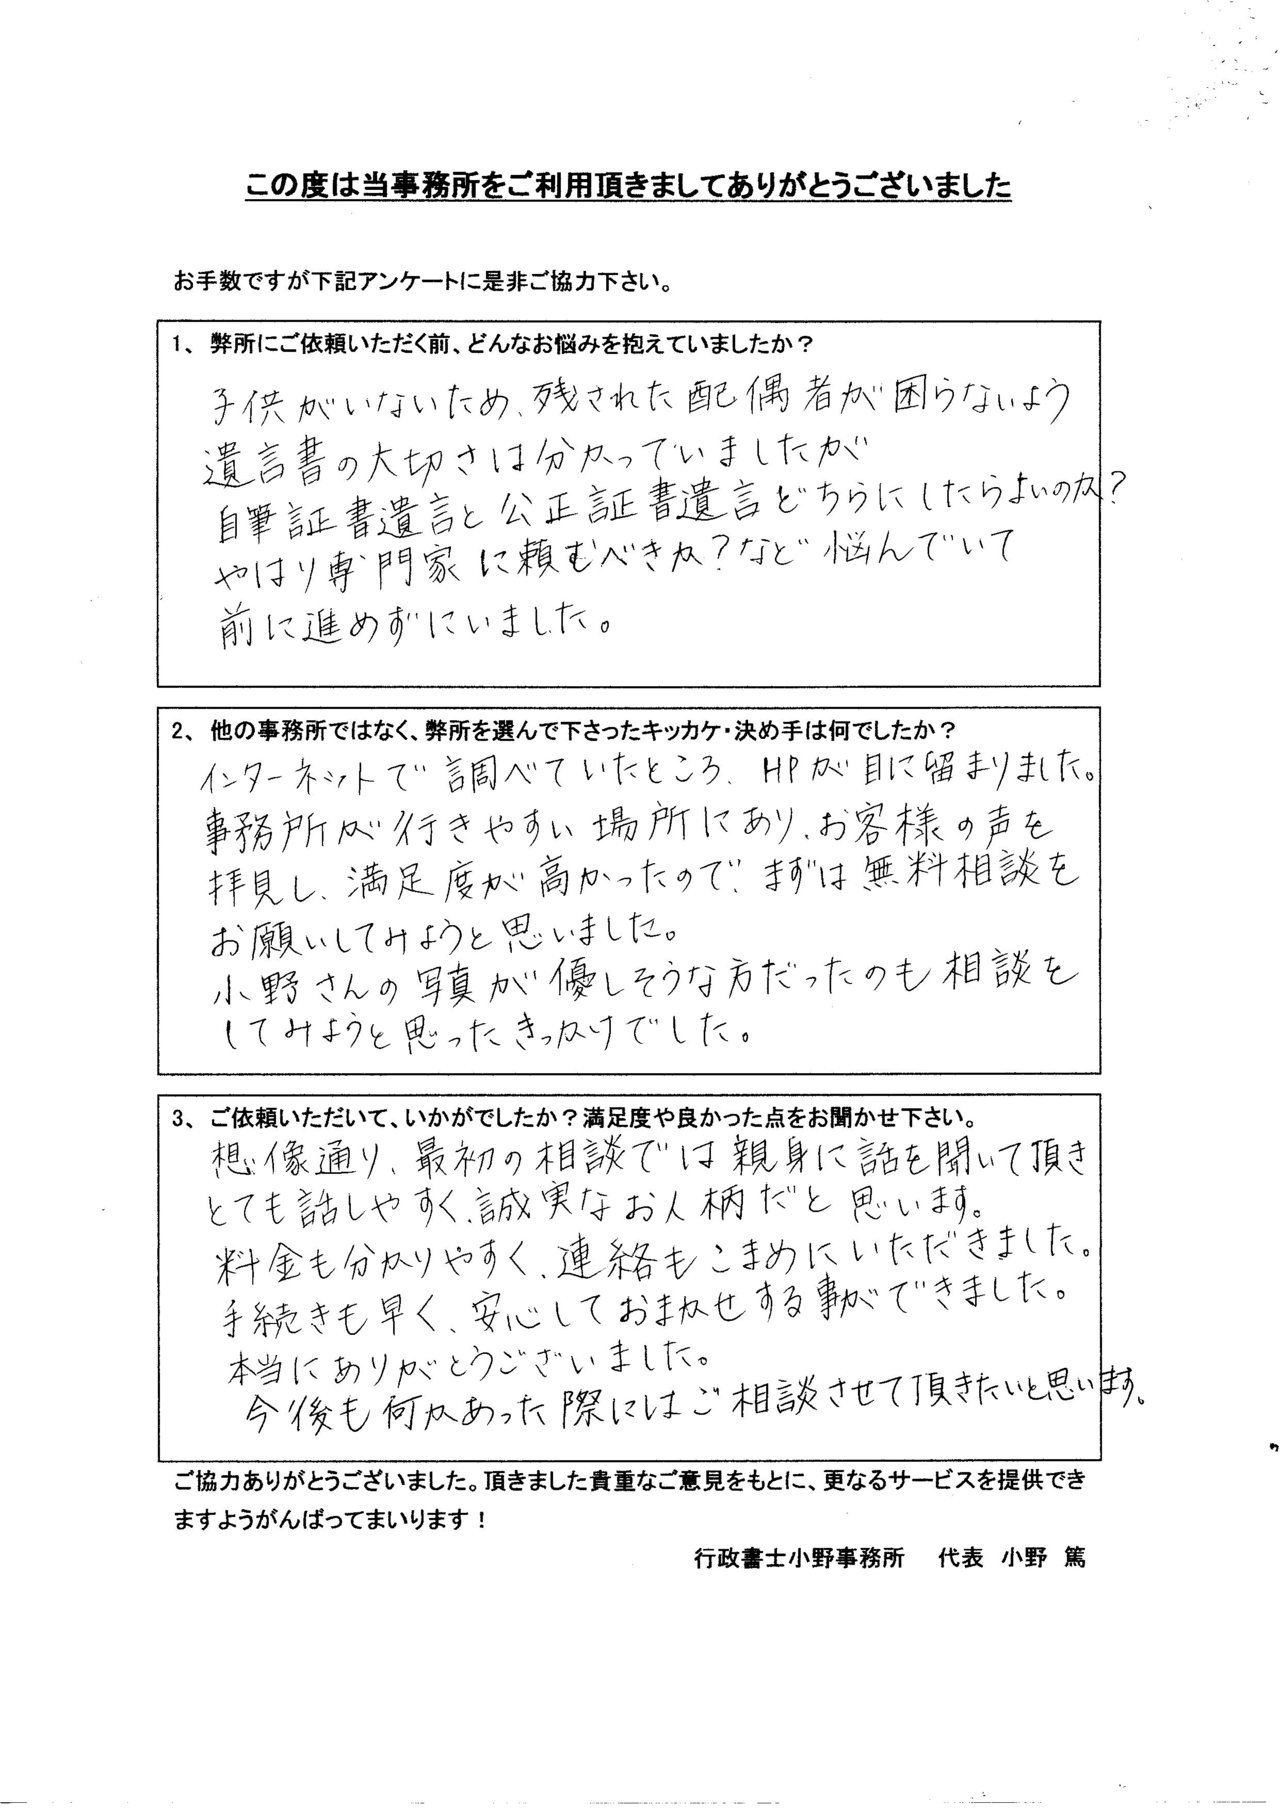 この度は当事務所をご利用頂きましてありがとうございました
お手数ですが下記アンケートに是非ご協力下さい。
1、 弊所にご依頼いただく前、どんなお悩みを抱えていましたか？
子供がいないため、残された配偶者が困らないよう
遺言書の大切さは分かっていましたが
自筆証書遺言と公正証書遺言どちらにしたらよいのか？
やはり専門家に頼むべきか？など悩んでいて
前に進めずにいました。
2、 他の事務所ではなく、弊所を選んで下さったキッカケ・決め手は何でしたか？
インターネットで調べていたところ、HPが目に留まりました。
事務所が行きやすい場所にあり、お客様の声を
拝見し、満足度が高かったので、まずは無料相談を
お願いしてみようと思いました。
小野さんの写真が優しそうな方だったのも相談を
してみようと思ったきっかけでした。
3、 ご依頼いただいて、いかがでしたか？満足度や良かった点をお聞かせ下さい。
想像通り、最初の相談では親身に話を聞いて頂き
とても話しやすく、誠実なお人柄だと思います。
料金も分かりやすく、連絡もこまめにいただきました。
手続きも早く、安心しておまかせする事ができました。
本当にありがとうございました。
今後も何かあった際にはご相談させて頂きたいと思います。
ご協力ありがとうございました。頂きました貴重なご意見をもとに、更なるサービスを提供でき
ますようがんばってまいります！
行政書士小野事務所 代表 小野 篤